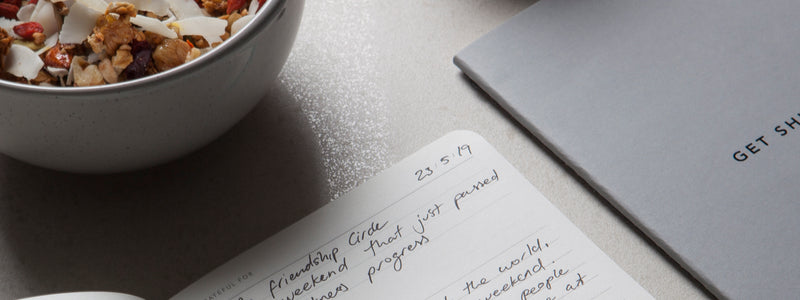 23:5:19
GRATEFUL FOR
friendship Circle
weekend that just passed
progress
the world,
weekend.
people
at
GET SH